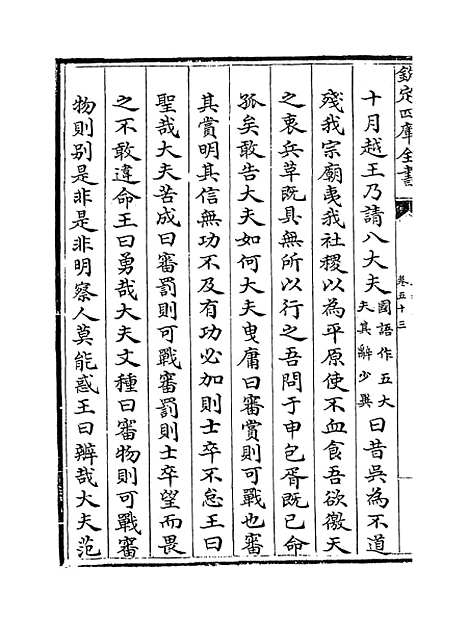 欽定四庫全書
卷五十三
十月越王乃請八大夫國語作五大夫其辭少異曰昔吳為不道
殘我宗廟夷我社稷以為平原使不血食吾欲徼天
之衷兵革既具無所以行之吾問于申包胥既已命
孤矣敢告大夫如何大夫曳庸曰審賞則可戰也審
其賞明其信無功不及有功必加則士卒不怠王曰
聖哉大夫苦成曰審罰則可戰審罰則士卒望而畏
之不敢違命王曰勇哉大夫文種曰審物則可戰審
物則别是非是非明察人莫能惑王曰辨哉大夫范